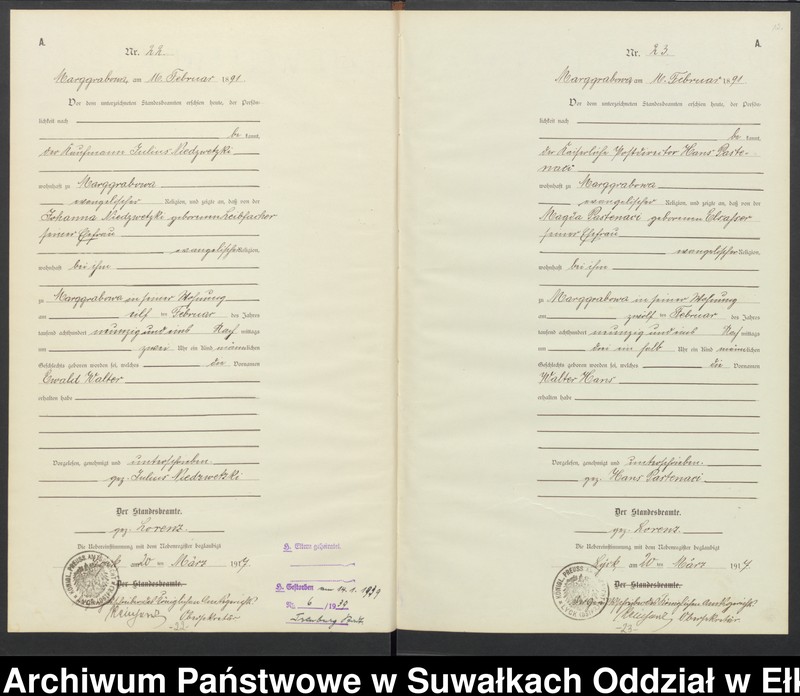 A.
Nr. 22
Marggrabowa, am 16. Februar 1891
Vor dem unterzeichneten Standesbeamten erschien heute, der Persön-
lichkeit nach
be kannt,
der Kaufmann Julius Niedzwetzki
wohnhaft zu Marggrabowa
evangelischer Religion, und zeigte an, daß von der
Johanna Niedzwetzki geborenen
seiner Ehefrau
evangelischer Religion,
wohnhaft bei ihm
zu Marggrabowa in seiner Wohnung
am elf ten Februar des Jahres
tausend achthundert neunzig und eins Nach mittags
um zwei Uhr ein Kind männ lichen
Geschlechts geboren worden sei, welches die Vornamen
Ewald Walter
erhalten habe
Vorgelesen, genehmigt und unterschrieben
gez. Julius Niedzwetzki
Der Standesbeamte.
gez. Lorenz.
Die Uebereinstimmung mit dem Nebenregister beglaubigt
Lyck am 20 ten März 19
Der Standesbeamte.
des Königlichen Amtsgerichts
Obersekretär
-22-
H. Eltern geheiratet
H. Gestorben am 14.1.1939
Nr. 6 /1939
A.
Nr. 23.
Marggrabowa am 16. Februar 1891
Vor dem unterzeichneten Standesbeamten erschien heute, der Persön-
lichkeit nach
be kannt,
der Kaiserliche Postdirektor Hans Parte-
naci
wohnhaft zu Marggrabowa
evangelischer Religion, und zeigte an, daß von der
Magda Partenaci geborenen
seiner Ehefrau
evangelischer Religion,
wohnhaft bei ihm
zu Marggrabowa in seiner Wohnung
am zwölf ten Februar des Jahres
tausend achthundert neunzig und eins Nach mittags
um drei ein halb Uhr ein Kind männ lichen
Geschlechts geboren worden sei, welches die Vornamen
Walter Hans
erhalten habe
Vorgelesen, genehmigt und unterschrieben.
gez. Hans Partenaci
Der Standesbeamte.
gez. Lorenz.
Die Uebereinstimmung mit dem Nebenregister beglaubigt
Lyck am 20 ten März 19
Der Standesbeamte.
des Königlichen Amtsgerichts
Obersekretär
-23-
Archiwum Państwowe w Suwałkach Oddział w Eł